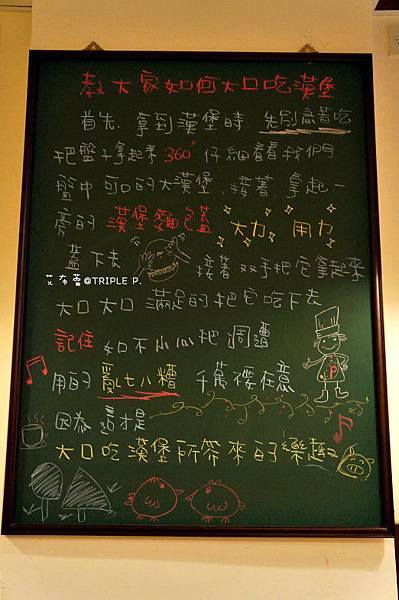 教大家如何大口吃漢堡
首先,拿到漢堡時,先別急著吃
把盤子拿起來360°仔細看看我們
盤中可口的大漢堡,接著,拿起一
旁的漢堡麵包蓋 大力 用力
蓋下去 接著双手把它拿起來
艾布蕾@TRIPLE P.
大口大口滿足的把它吃下去
記住 如不小心把周遭
用的亂七八糟 千萬禒在意
因為這才是
大口吃漢堡所帶來的樂趣
P